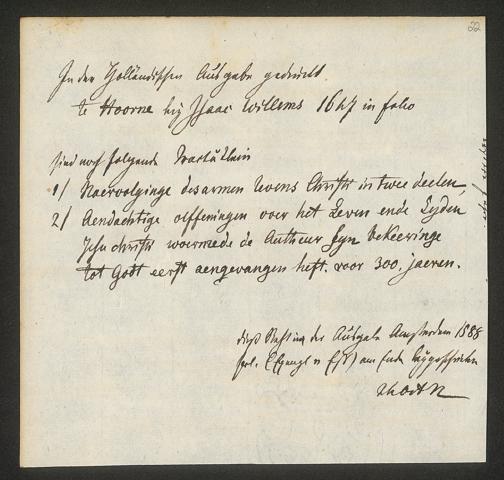 22
In der Holländischen Ausgabe gedruckt
te Hoorne bij Isaac Willems 1647 in folio
sind noch folgende Tractätlein
1/ Naervolginge des armen levens Christi in twee deelen,
2/ Aendachtige oeffeningen over het Leven ende Lyden
Jesu Christi waermede de Autheur syn bekeeringe
tot Gott eerst aengevangen heft. voor 300. jaeren.
der Ausgabe Amsterdam 1588
am Ende